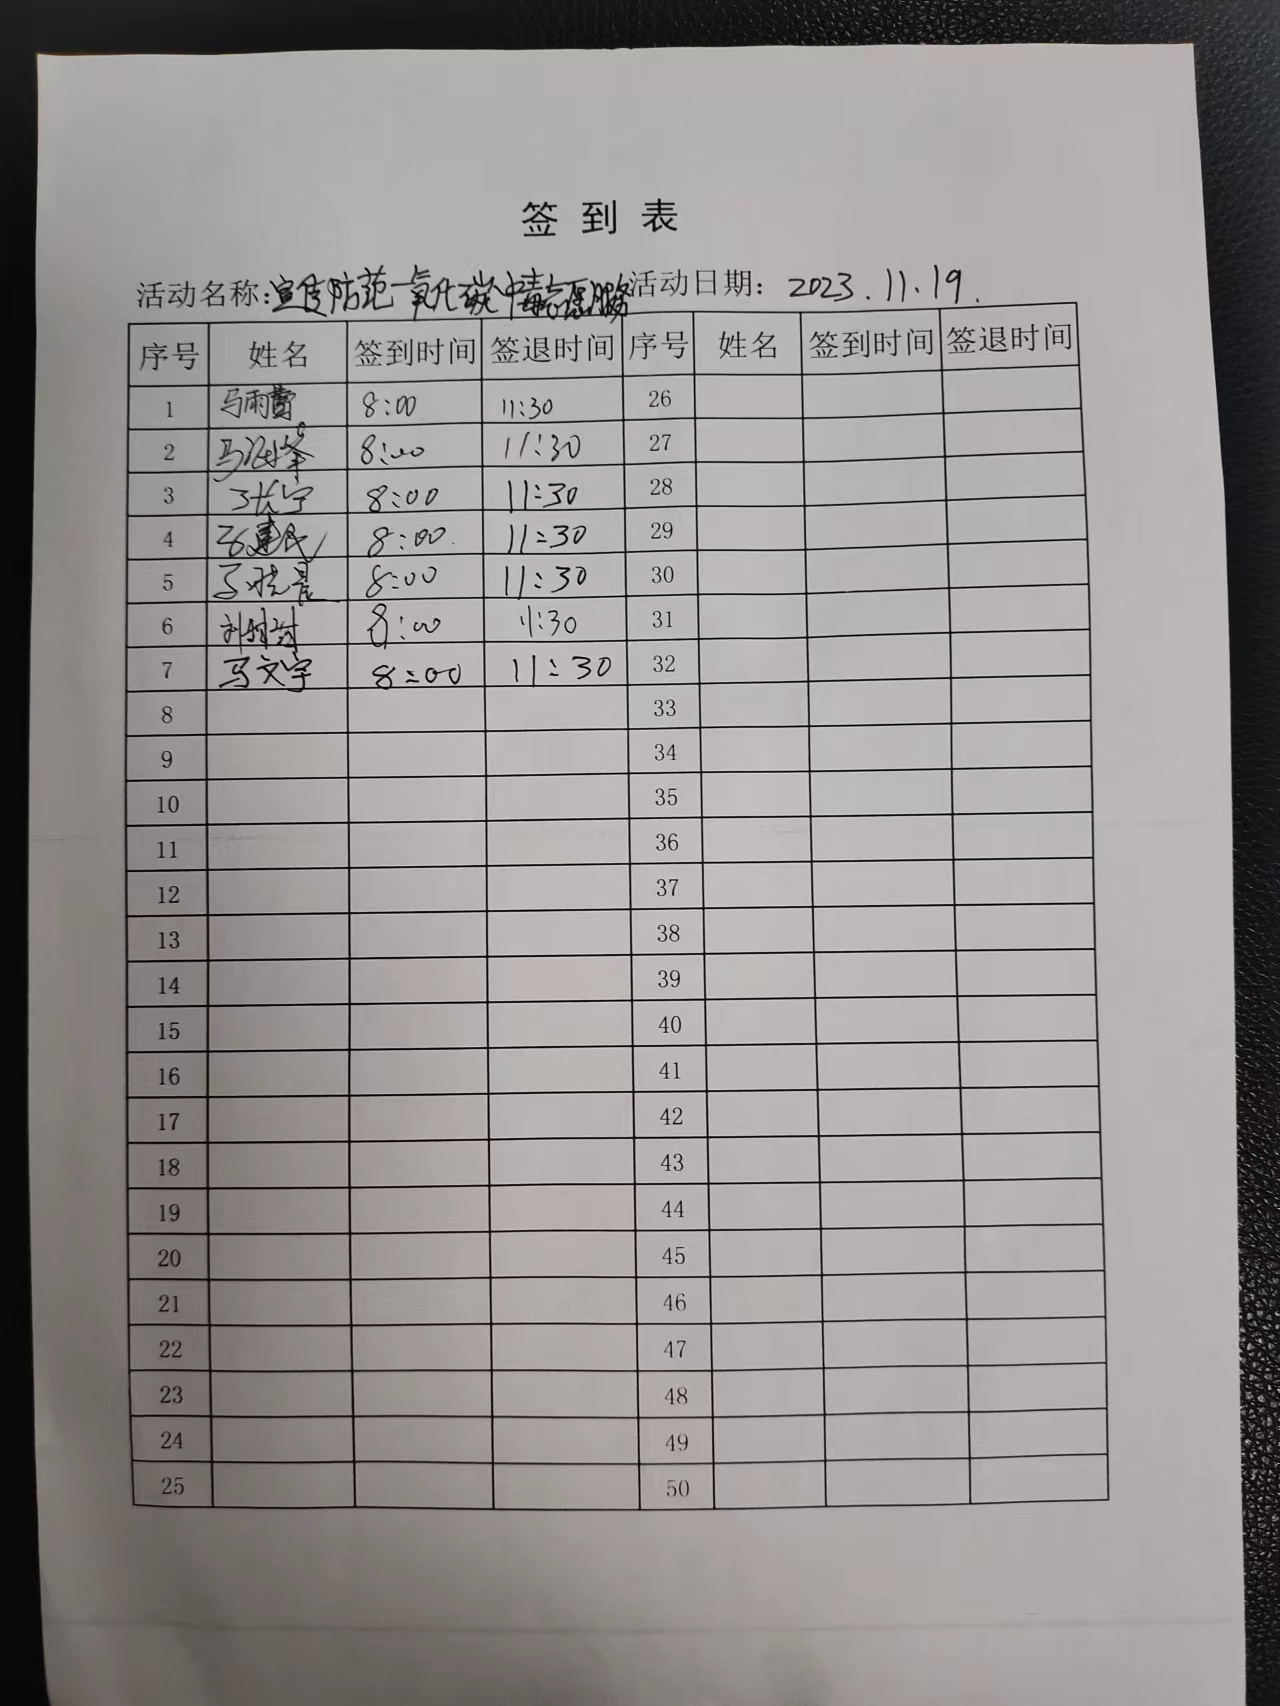 签到表
活动名称:宣传防范一氧化碳中毒志愿服务 活动日期: 2023.11.19.
序号 姓名 签到时间 签退时间 序号 姓名 签到时间 签退时间
1 马雨 8:00 11:30 26
2 马 8:00 11:30 27
3 8:00 11:30 28
4 建民 8:00. 11:30 29
5 8:00 11:30 30
6 刘 8:00 11:30 31
7 马文宇 8:00 11:30 32
8 33
9 34
10 35
11 36
12 37
13 38
14 39
15 40
16 41
17 42
18 43
19 44
20 45
21 46
22 47
23 48
24 49
25 50